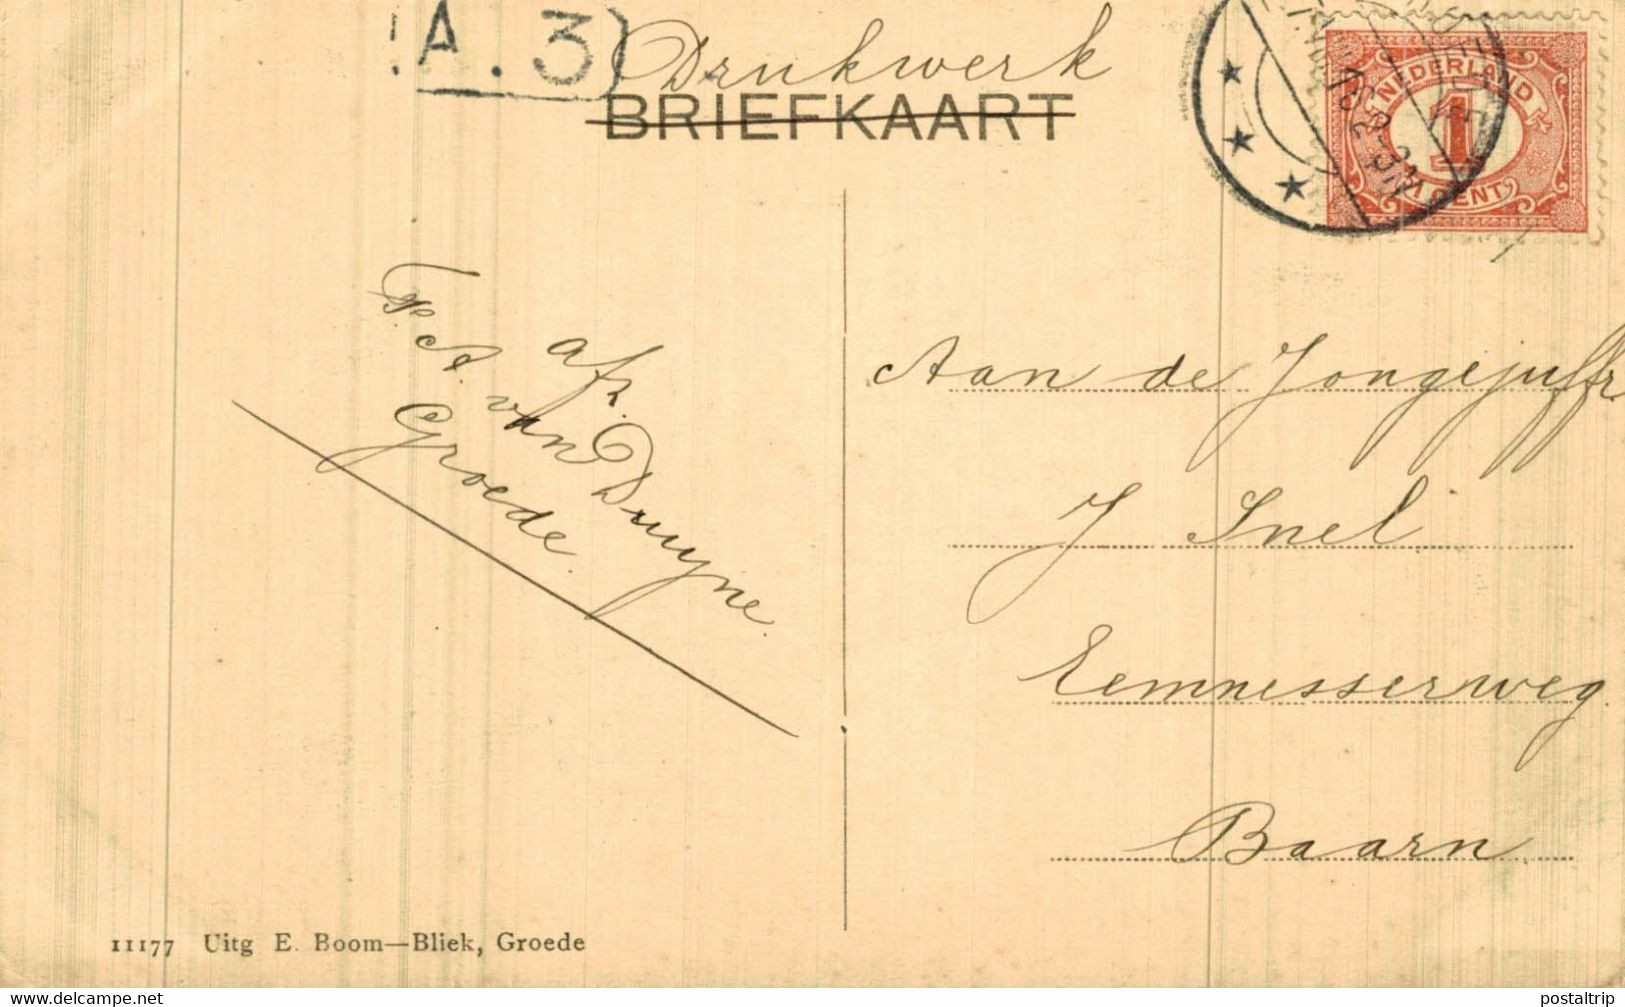 (A. 3)
Drukwerk
BRIEFKAART
NEDERLAND
1
1 CENT
afz.
van Druyne
Groede
Aan de Jongejuffr
J Snel
Eemnesserweg
Baarn
11177 Uitg E. Boom—Bliek, Groede
www.delcampe.net
postaltrip